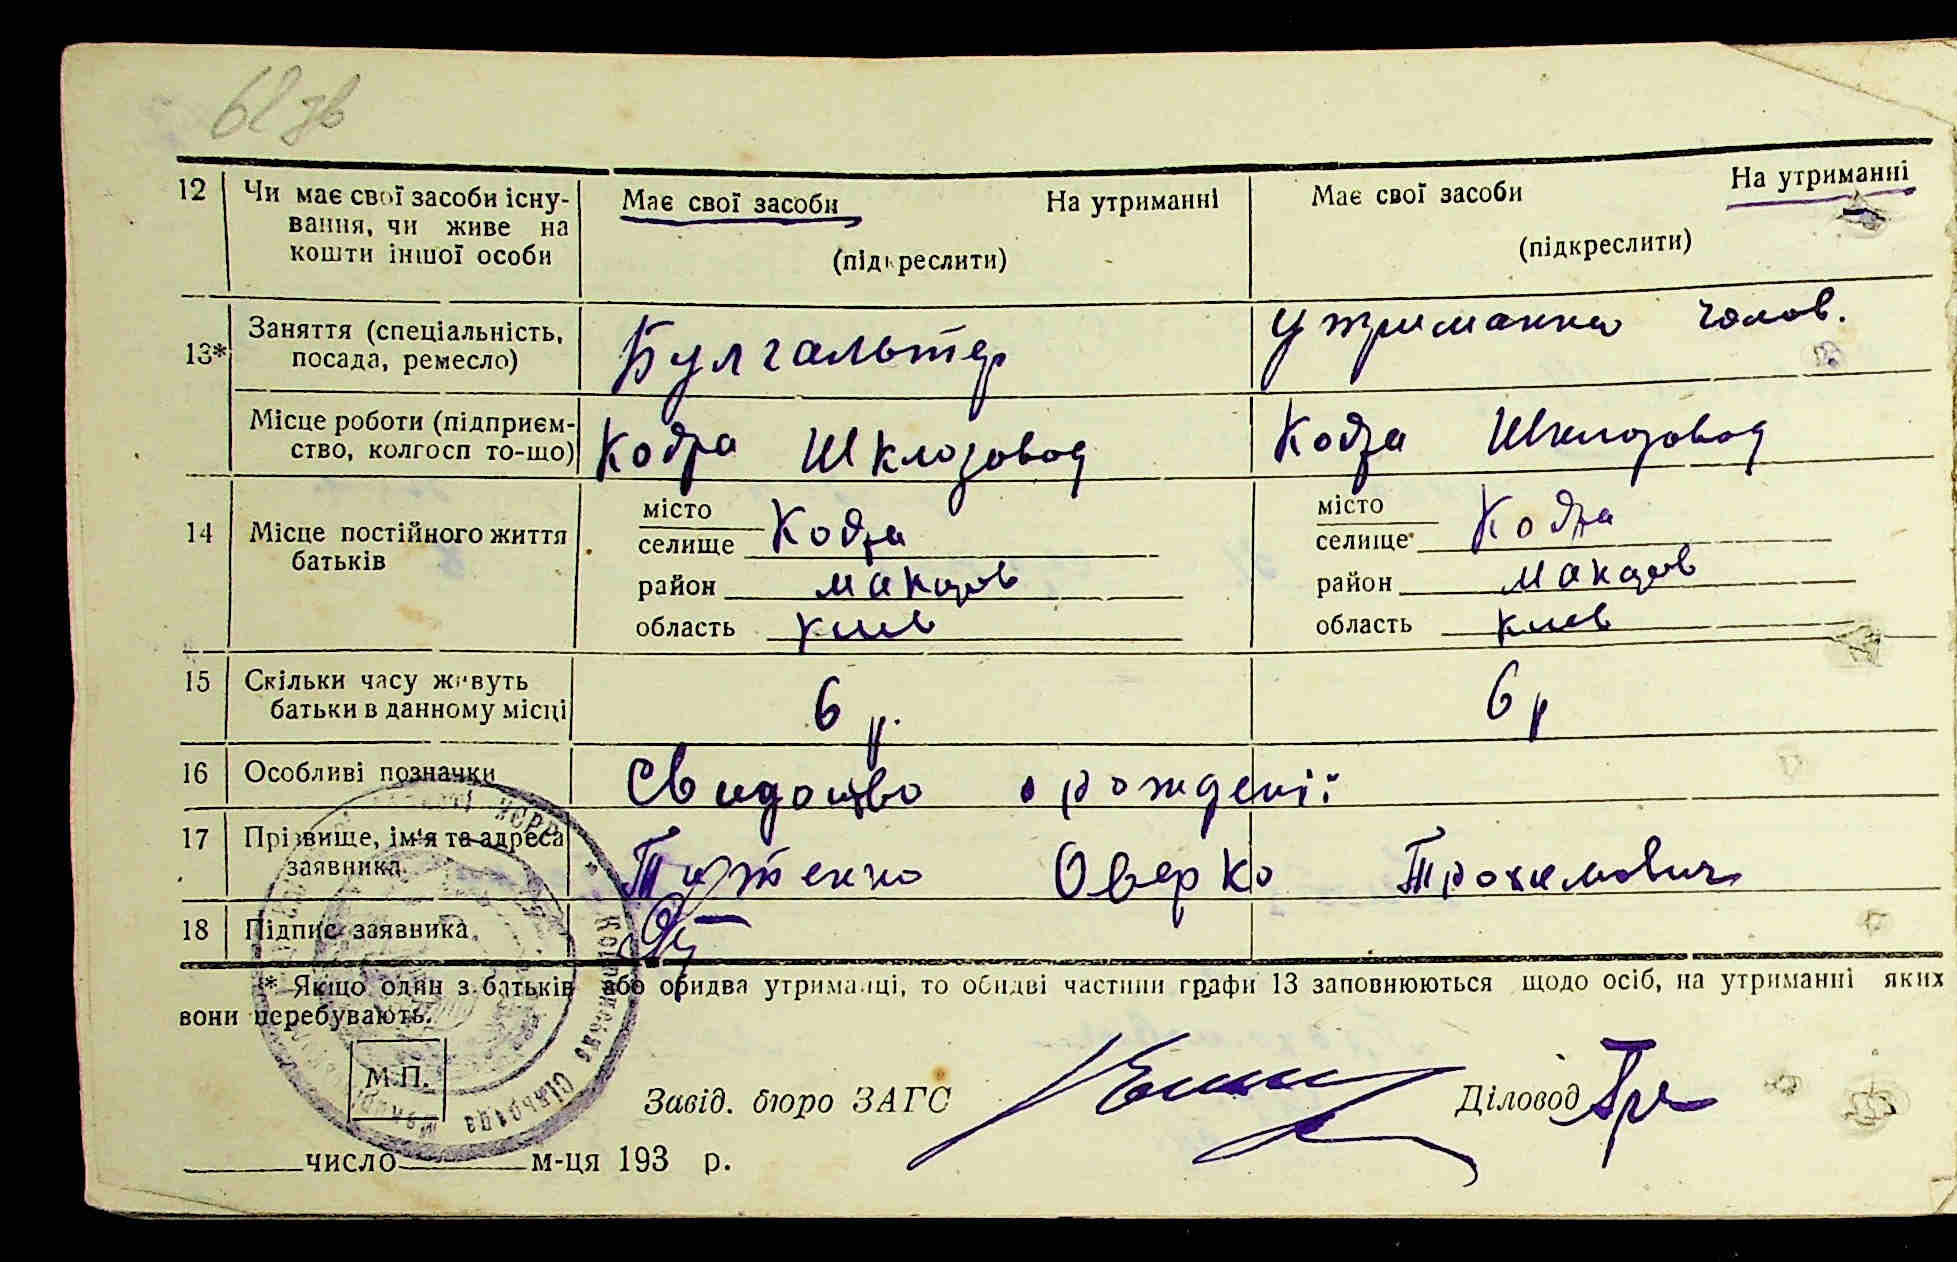 62 зв
12 Чи має свої засоби існу- Має свої засоби На утриманні Має свої засоби На утриманні
вання, чи живе на
кошти іншої особи (підкреслити) (підкреслити)
13* Заняття (спеціальність, Булгальтер Утримання чолов.
посада, ремесло)
Місце роботи (підприєм- Кодра Шклозавод Кодра Шклозавод
ство, колгосп то-що)
місто місто
14 Місце постійного життя селище Кодра селище Кодра
батьків район Макаров район Макаров
область Киев область Киев
15 Скільки часу живуть 6 р. 6 р
батьки в данному місці
16 Особливі позначки Свидоцтво о рожденії
17 Прізвище, ім'я та адреса Оверко Трохимович
заявника
18 Підпис заявника
* Якщо один з батьків або обидва утриманці, то обидві частини графи 13 заповнюються щодо осіб, на утриманні яких
вони перебувають.
М.П.
Завід. бюро ЗАГС Діловод
число м-ця 193 р.
УСРР * Сільрада